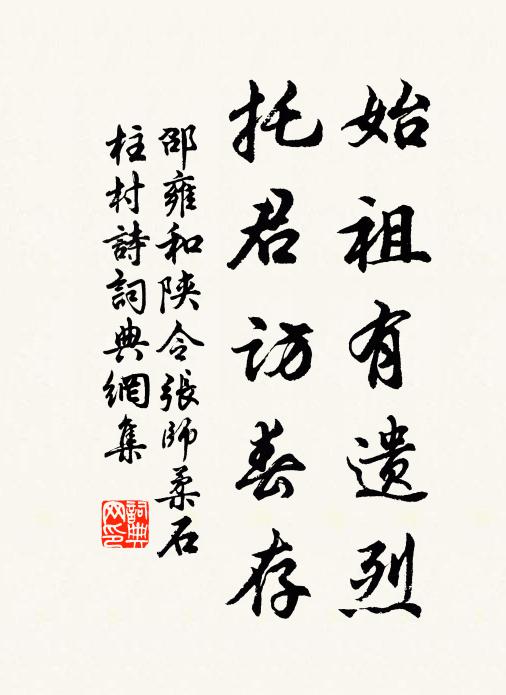 始祖有遗烈
托君访春存
邵雍和陝令張師柔石
柱村詩詞典網集
詞典网印